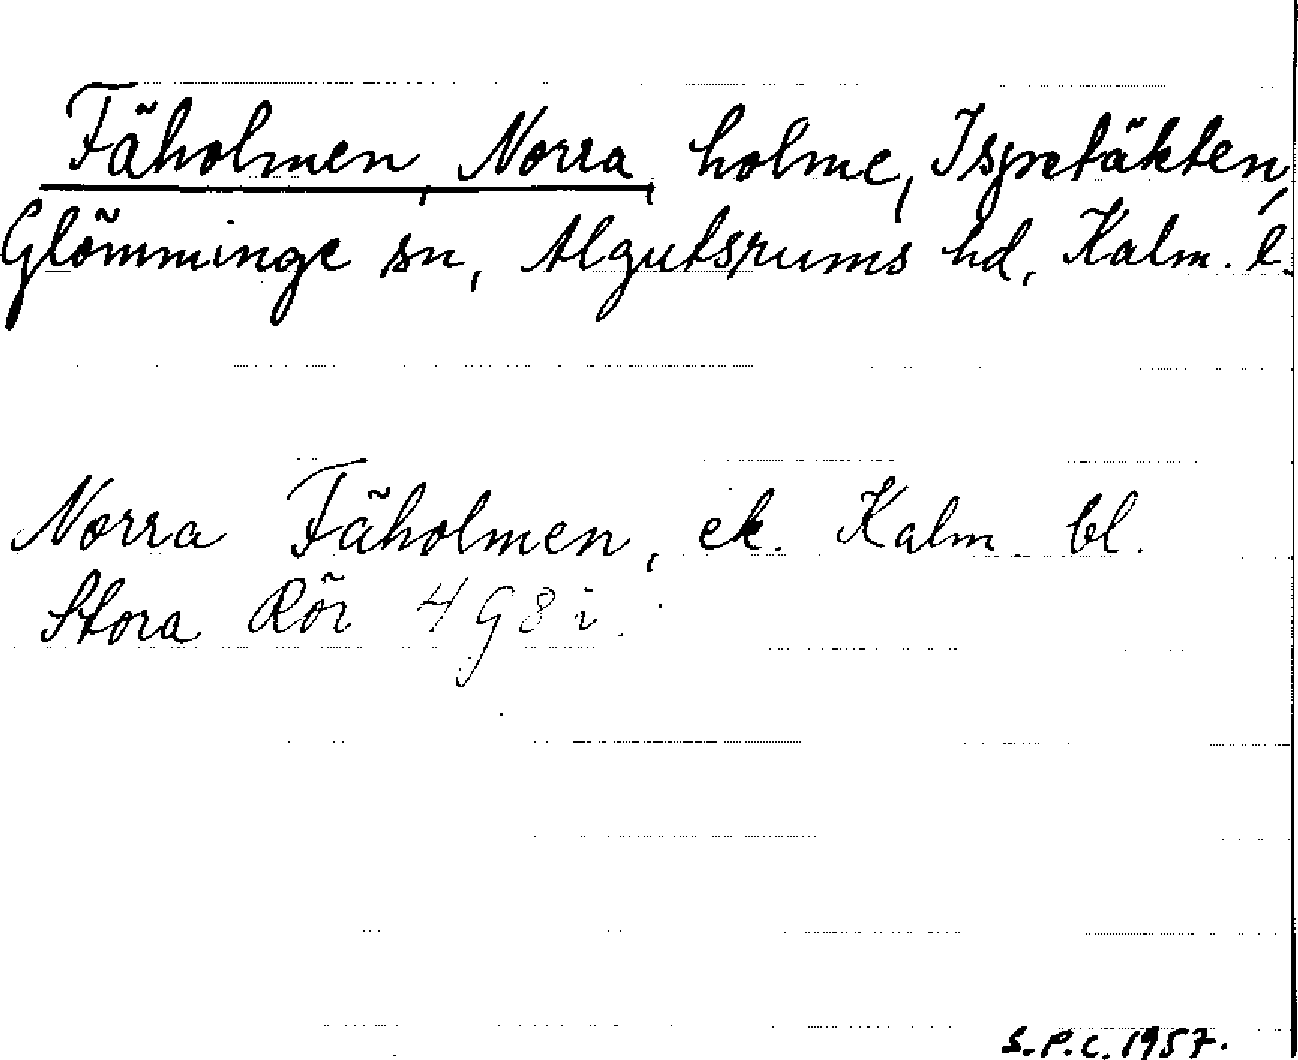 Fäholmen, Norra, holme, Ispetäkten,
Glömminge sn, Algutsrums hd, Kalm. l.
Norra Fäholmen, ek. Kalm. bl.
Stora Rör 4 G 8 i.
S.P.C. 1957.